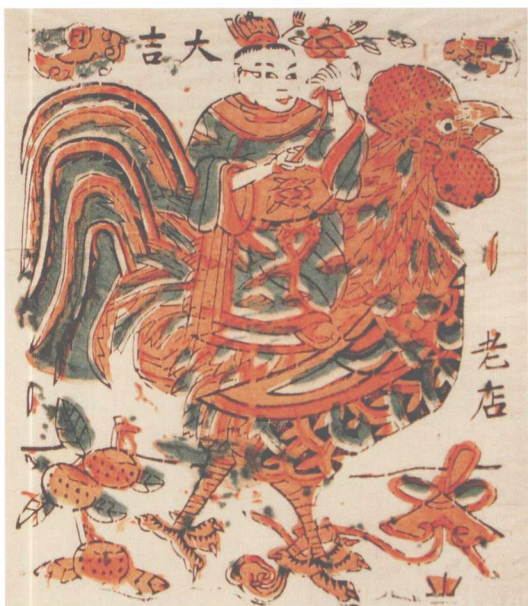 大吉
老店